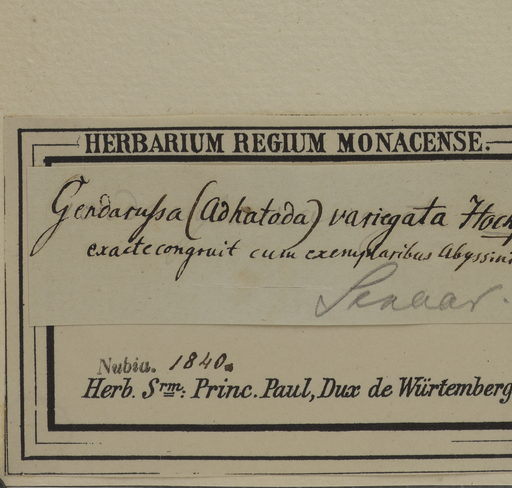 HERBARIUM REGIUM MONACENSE.
Gendarussa (Adhatoda) variegata Hoch
exacte congruit cum exemplaribus Abyssini
Sennar.
Nubia. 1840.
Herb. Srm: Princ. Paul, Dux de Würtemberg